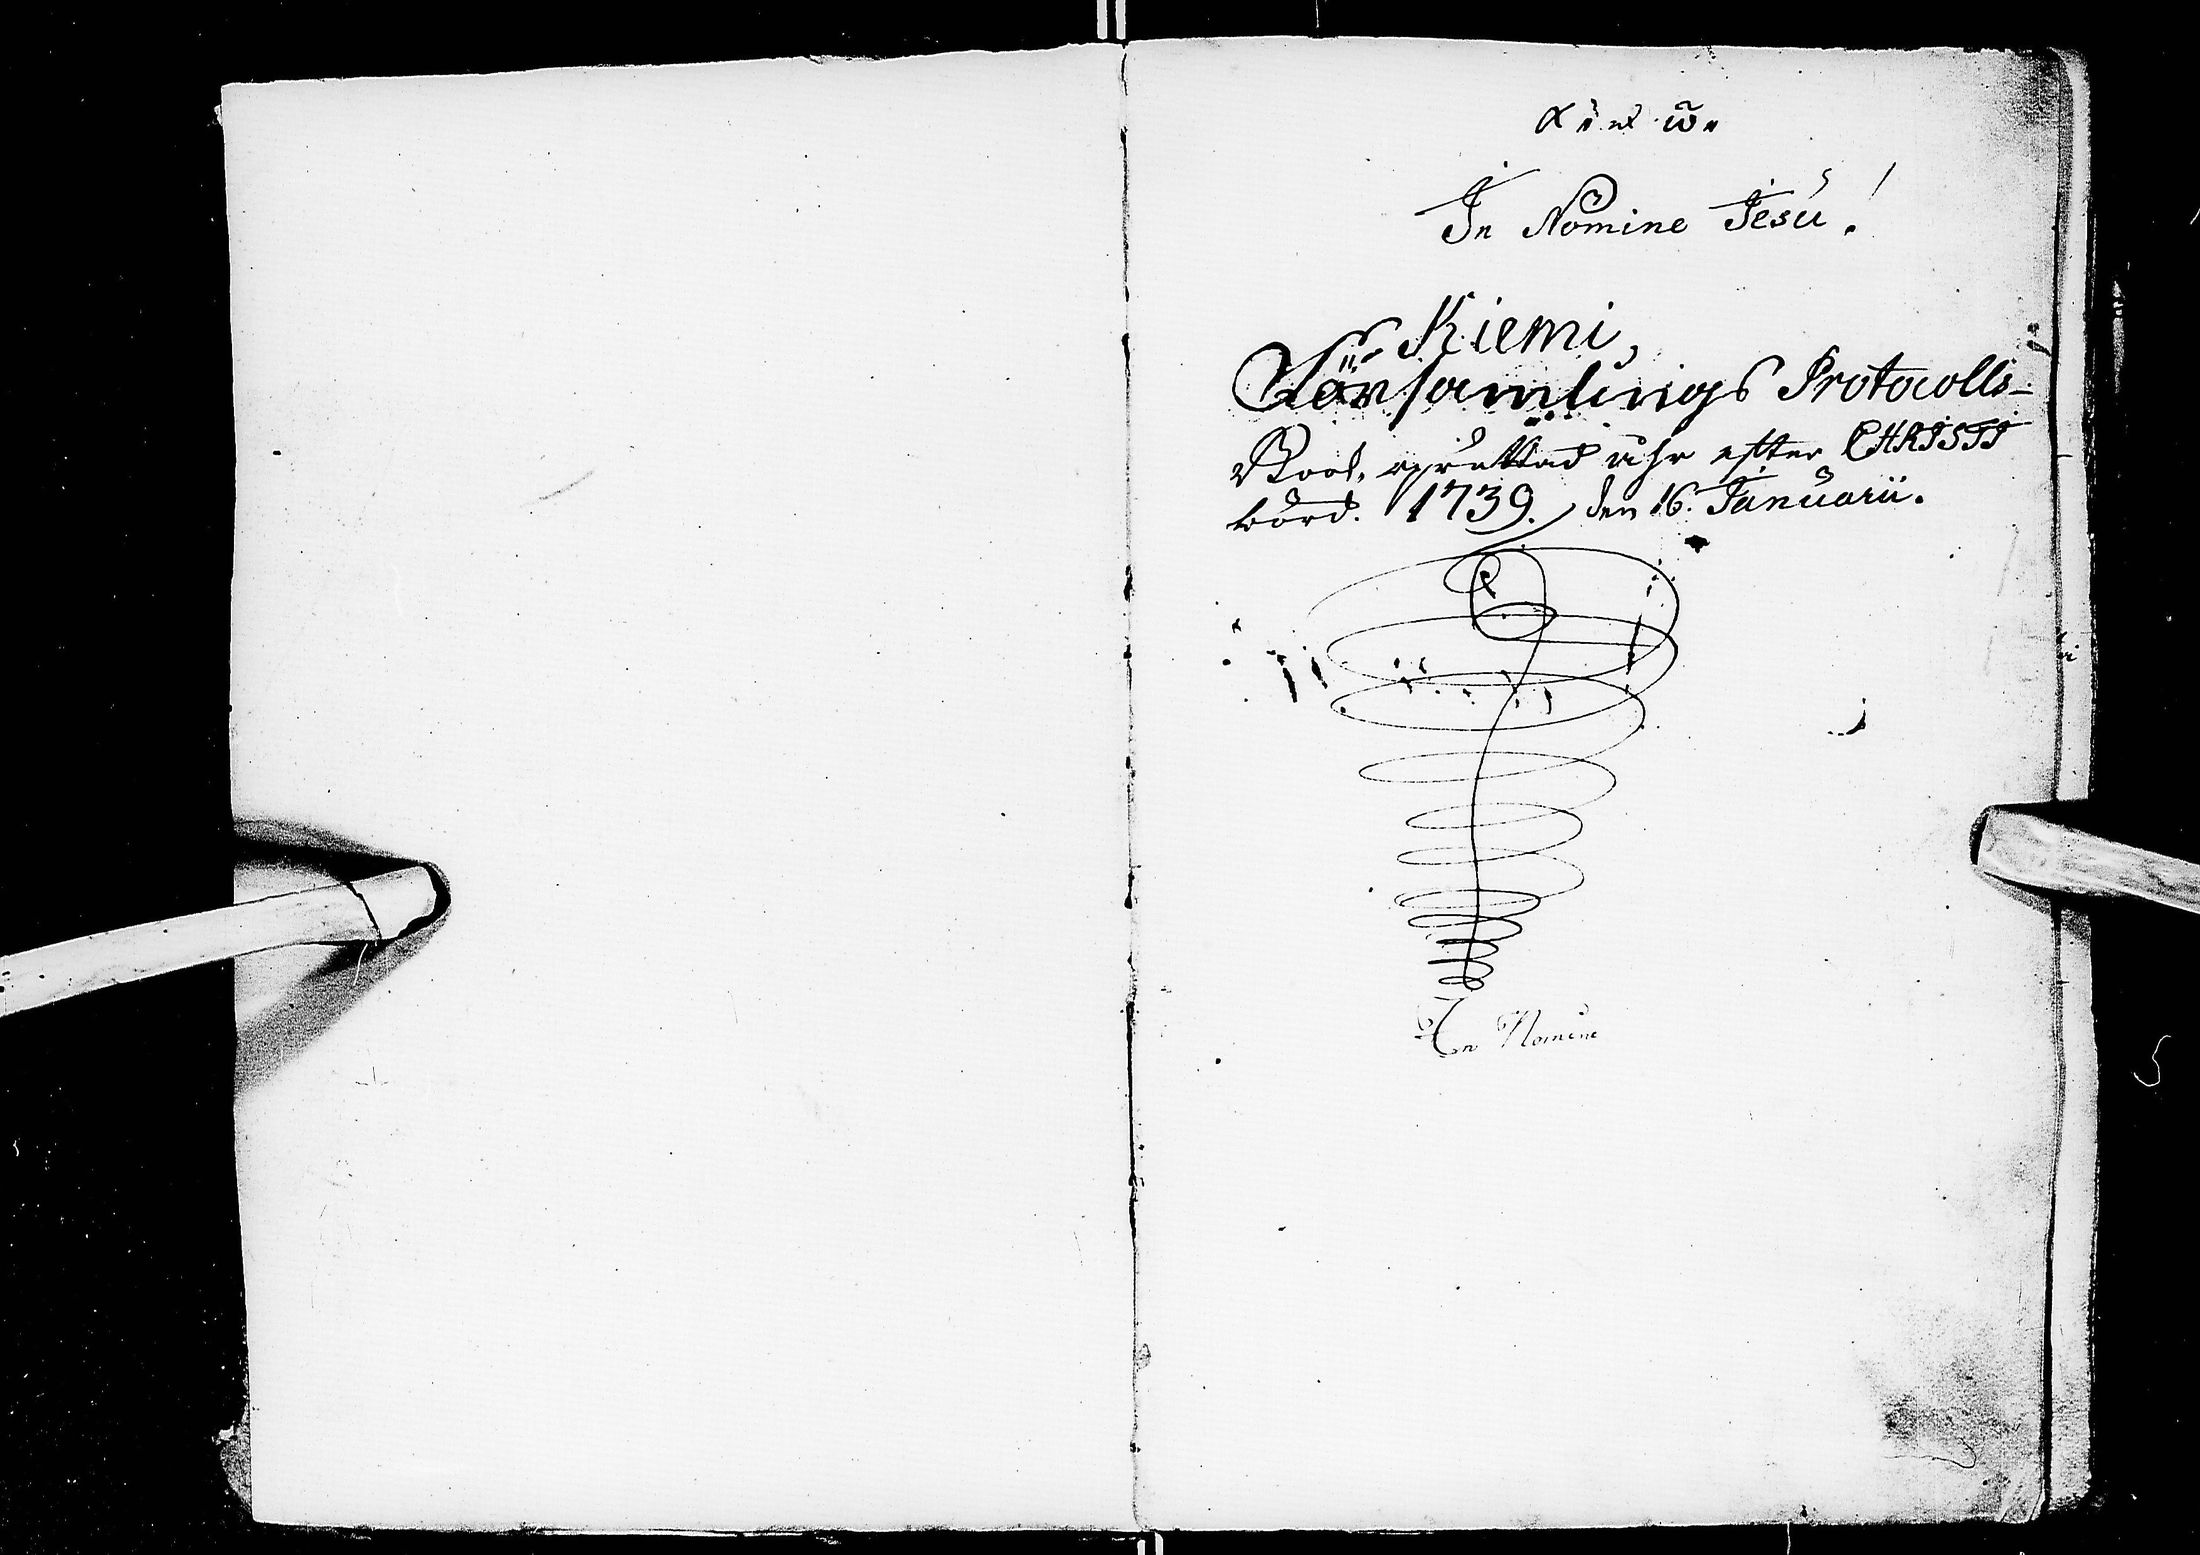 α
In Nomine Jesu!
Kiemi
Församlings Protocolls-
Book, oprettad åhr efter CHRISTI
börd. 1739. den 16. Januarii.
In Nomine